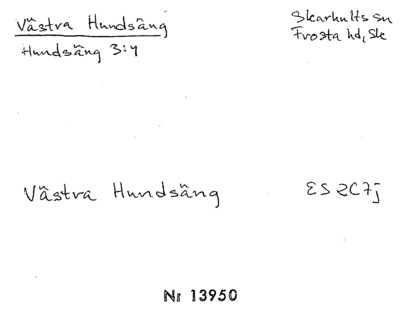 Västra Hundsäng
Hundsäng 3:4
Skarhults sn
Frosta hd, Sk
Västra Hundsäng
ES 2C7j
Nr 13950